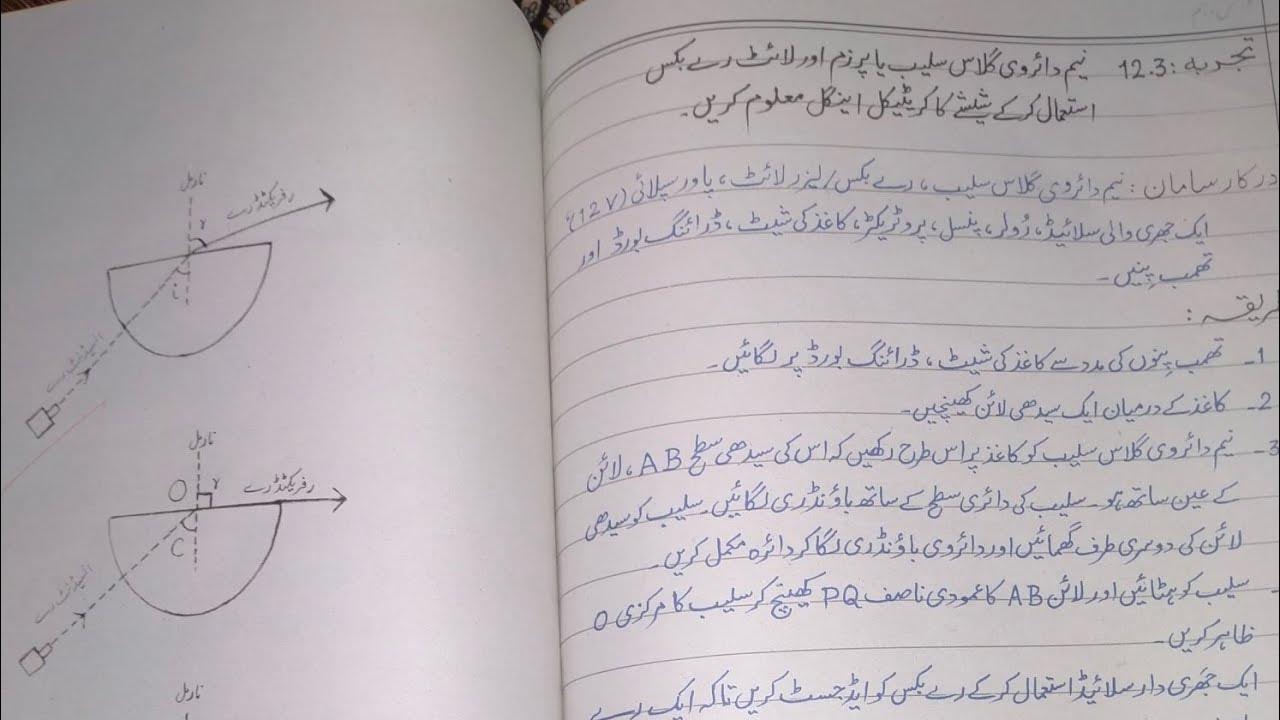 تجربہ : 12.3 نیم دائروی گلاس سلیب یا پرزم اور لائٹ رے بکس
استعمال کرکے شیشے کا کریٹیکل اینگل معلوم کریں۔
درکار سامان : نیم دائروی گلاس سلیب ، رے بکس / لیزر لائٹ ، پاور سپلائی (12V)،
ایک جھری والی سلائیڈ، رُولر، پنسل، پروٹریکٹر، کاغذ کی شیٹ ، ڈرائنگ بورڈ اور
تھمب پِنیں ۔
طریقہ :
1۔ تھمب پِنوں کی مدد سے کاغذ کی شیٹ ، ڈرائنگ بورڈ پر لگائیں ۔
2۔ کاغذ کے درمیان ایک سیدھی لائن کھینچیں ۔
3۔ نیم دائروی گلاس سلیب کو کاغذ پر اس طرح رکھیں کہ اس کی سیدھی سطح AB ، لائن
کے عین ساتھ ہو۔ سلیب کی دائری سطح کے ساتھ باؤنڈری لگائیں۔ سلیب کو سیدھی
لائن کی دوسری طرف گھمائیں اور دائروی باؤنڈری لگا کر دائرہ مکمل کریں ۔
سلیب کو ہٹائیں اور لائن AB کا عمودی ناصف PQ کھینچ کر سلیب کا مرکزی O
ظاہر کریں ۔
ایک جھری دار سلائیڈ استعمال کرکے رے بکس کو ایڈجسٹ کریں تاکہ ایک رے
نارمل
رفریکٹڈ رے
r
i
انسیڈنٹ رے
نارمل
O
r
رفریکٹڈ رے
C
انسیڈنٹ رے
نارمل